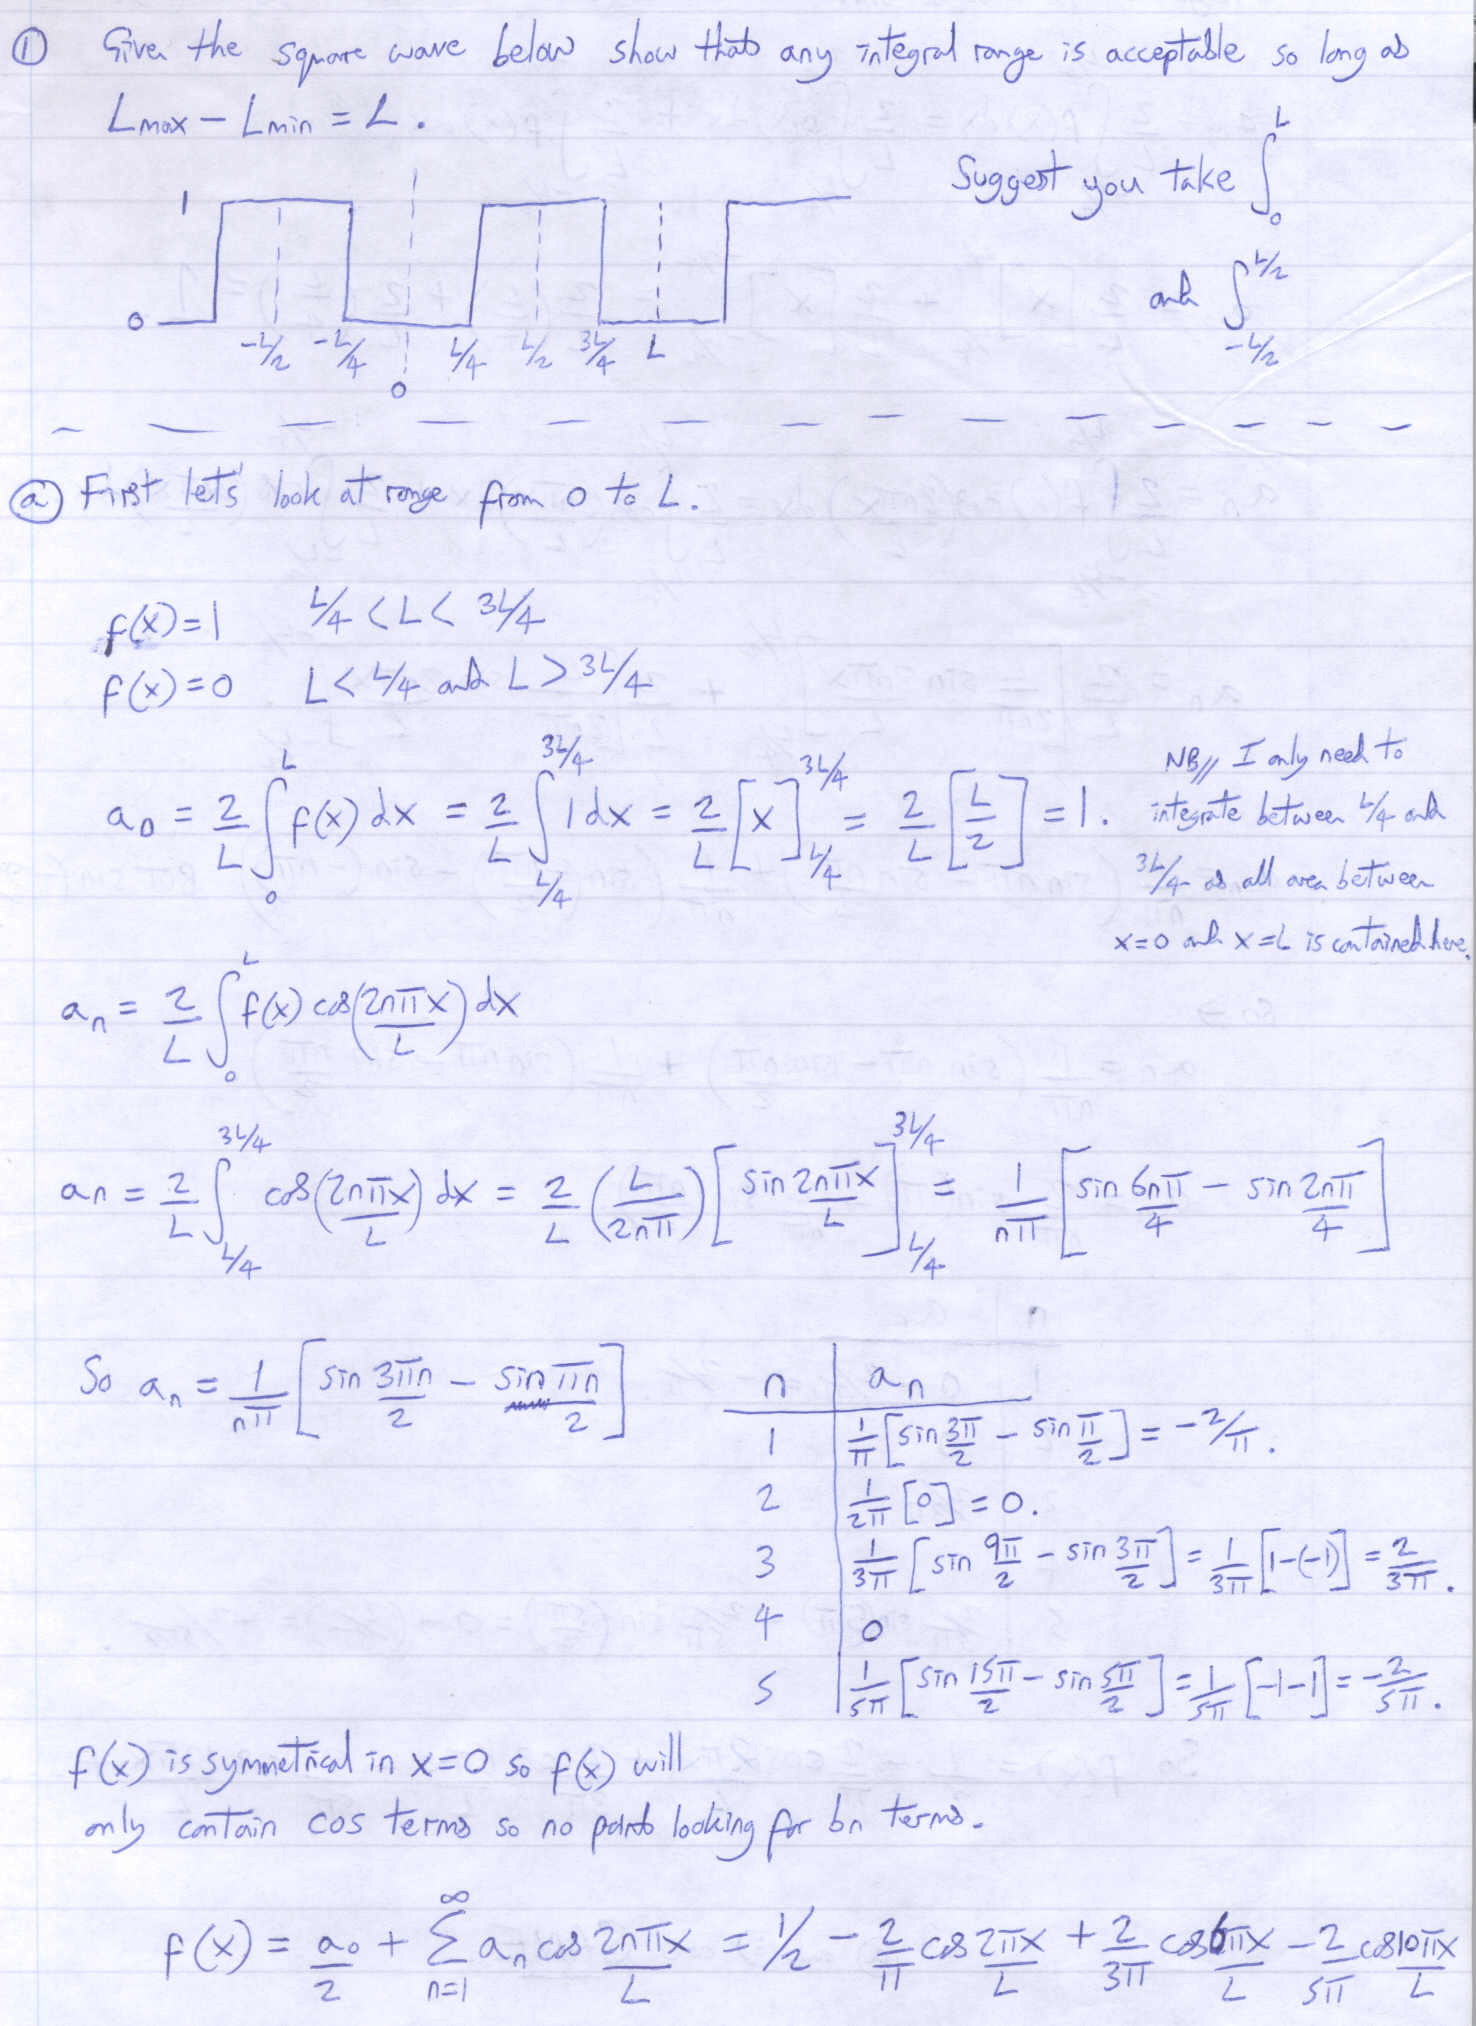 ① Given the square wave below show that any integral range is acceptable so long as
Lmax - Lmin = L.
Suggest you take ∫₀ᴸ
and ∫ from -L/2 to L/2
1
0
-L/2 -L/4 0 L/4 L/2 3L/4 L
ⓐ First let's look at range from 0 to L.
f(x)=1 L/4 < L < 3L/4
f(x)=0 L < L/4 and L > 3L/4
a₀ = 2/L ∫₀ᴸ f(x) dx = 2/L ∫_{L/4}^{3L/4} 1 dx = 2/L [x]_{L/4}^{3L/4} = 2/L [L/2] = 1.
NB// I only need to
integrate between L/4 and
3L/4 as all area between
x=0 and x=L is contained here.
aₙ = 2/L ∫₀ᴸ f(x) cos(2nπx/L) dx
aₙ = 2/L ∫_{L/4}^{3L/4} cos(2nπx/L) dx = 2/L (L/2nπ) [sin 2nπx/L]_{L/4}^{3L/4} = 1/nπ [sin 6nπ/4 - sin 2nπ/4]
So aₙ = 1/nπ [sin 3πn/2 - sin πn/2]
n aₙ
1 1/π [sin 3π/2 - sin π/2] = -2/π.
2 1/2π [0] = 0.
3 1/3π [sin 9π/2 - sin 3π/2] = 1/3π [1-(-1)] = 2/3π.
4 0
5 1/5π [sin 15π/2 - sin 5π/2] = 1/5π [-1-1] = -2/5π.
f(x) is symmetrical in x=0 so f(x) will
only contain cos terms so no point looking for bn terms.
f(x) = a₀/2 + Σ_{n=1}^{∞} aₙ cos 2nπx/L = 1/2 - 2/π cos 2πx/L + 2/3π cos 6πx/L - 2/5π cos 10πx/L